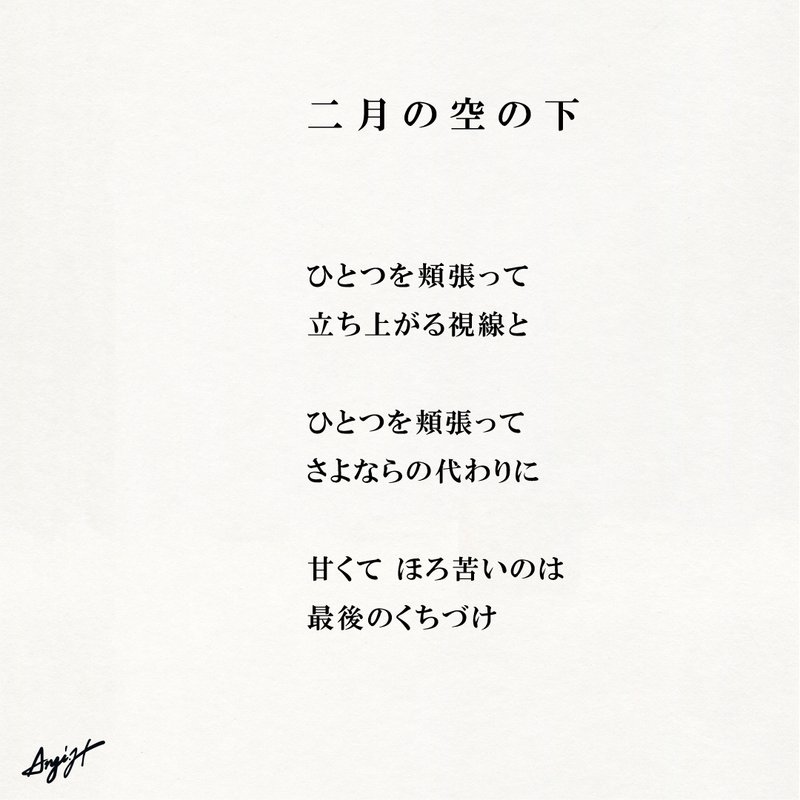 二月の空の下
ひとつを頬張って
立ち上がる視線と
ひとつを頬張って
さよならの代わりに
甘くて ほろ苦いのは
最後のくちづけ